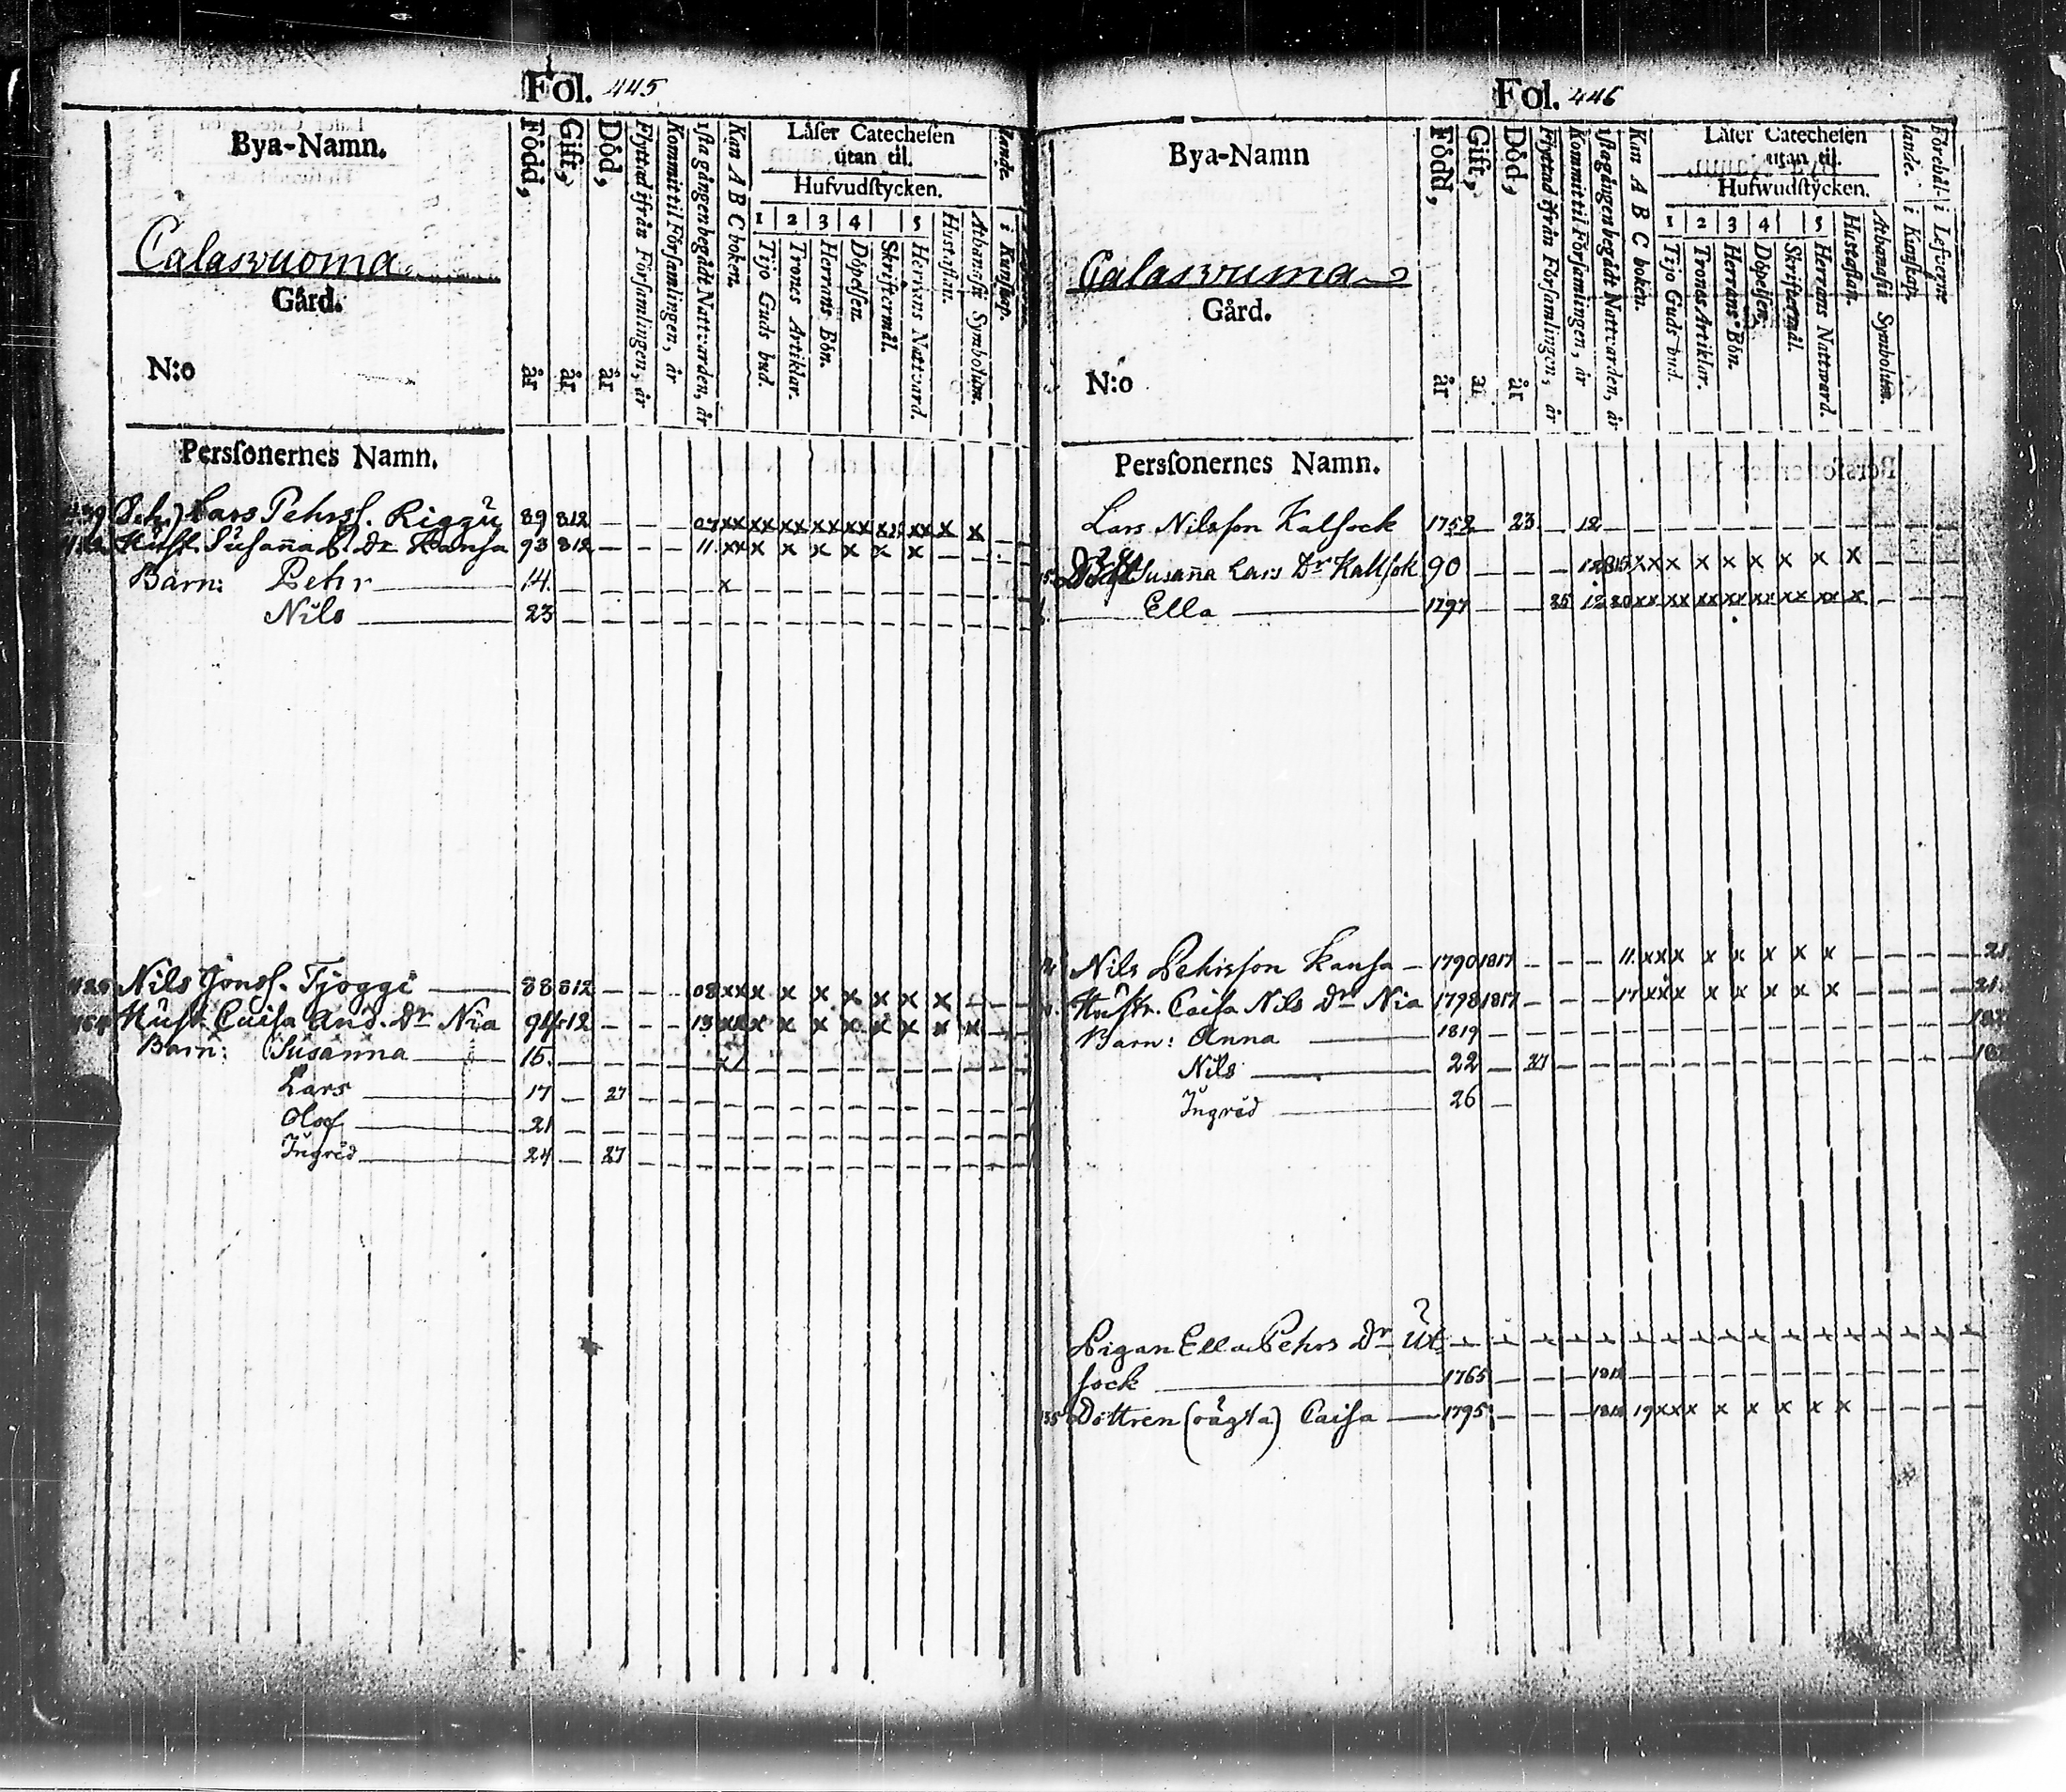 Fol. 445
Bya-Namn.
Calasvuoma
Gård.
N:o
Persſonernes Namn.
Född, år
Gift, år
Död, år
Flyttad ifrån Förſamlingen, år
Kommit til Förſamlingen, år
1ſta gången begådt Nattvarden, år
Kan A B C boken.
Läſer Catecheſen
utan til.
Hufvudſtycken.
1 2 3 4 5
Tijo Guds bud.
Trones Artiklar.
Herrans Bön.
Döpelſen.
Skriftermål.
Herrans Nattvard.
Huſtaflan.
Athanaſii Symbolum.
lande.
i Kunſkap.
Lars Pehrsſ. Riggu 89 812 — — — 07 xx xx xx xx xx xx xx x x
Huſt. Susan̄a L. Dr Kansa 93 812 — — — 11. xx x x x x x x — —
Barn: Pehr 14. — — — — x — — — — — — — —
Nils 23 — — — — — — — — — — — — —
Nils Jonsſ. Tjoggi 88 812 — — — 08 xx x x x x x x x — —
Huſt. Caiſa And. Dr Nia 94 812 — — — 13 xx x x x x x x x x —
Barn: Susanna 15. — — — — x — — — — — — — —
Lars 17 — 27 — — — — — — — — — — —
Olof 21 — — — — — — — — — — — — —
Ingrid 24 — 27 — — — — — — — — — — —
Fol. 446
Bya-Namn
Calasvuma
Gård.
N:o
Persſonernes Namn.
Född, år
Gift, år
Död, år
Flyttad ifrån Förſamlingen, år
Kommit til Förſamlingen, år
1ſta gången begådt Nattvarden, år
Kan A B C boken.
Läſer Catecheſen
utan til.
Hufwudſtycken.
1 2 3 4 5
Tijo Guds bud.
Trones Artiklar.
Herrans Bön.
Döpelſen.
Skriftermål.
Herrans Nattward.
Huſtaflan.
Athanaſii Symbolum.
lande. i Kunſkap.
Förehål- i Lefverne
Lars Nilsſon Kalſock 1752 — 23 — 12 — — — — — — — — — —
Susan̄a Lars Dr Kallſok 90 — — — 12 815 xx x x x x x x x
Ella 1797 — — 25 12 20 xx xx xx xx xx xx xx x — —
Nils Pehrsſon Kanſa — 1790 1817 — — — 11. xx x x x x x x — — — 21
Huſtr. Caiſa Nils Dr Nia 1798 1817 — — — 17 xx x x x x x x — — — 21.
Barn: Anna 1819 — — — — — — — — — — — — —
Nils 22 — 27 — — — — — — — — — — —
Ingrid 26 —
Pigan Ella Pehrs Dr Ut
ſock 1765 — — — 1812 — — — — — — — — —
Dottren (oägta) Caiſa — 1795 — — — 1812 19 xx x x x x x x — — — —